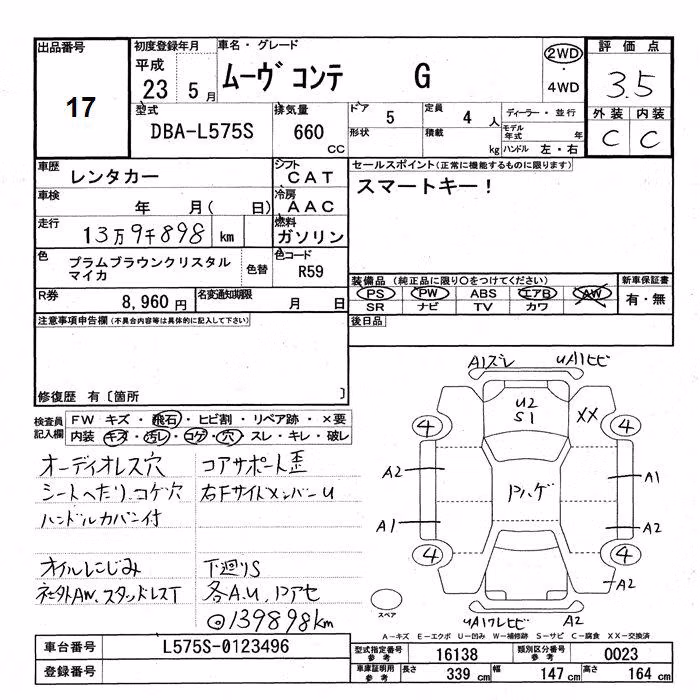 出品番号 初度登録年月 車名・グレード 評価点
17
平成 23 5月 ムーヴ コンテ G 2WD ・ 4WD 3.5
型式 排気量 ドア 5 定員 4 人 ディーラー・並行 外装 内装
DBA-L575S 660 CC 形状 積載 kg モデル年式 年 ハンドル 左・右 C C
車歴 レンタカー シフト CAT セールスポイント(正常に機能するものに限ります)
車検 年 月( 日) 冷房 AAC スマートキー!
走行 13万9千898 km 燃料 ガソリン
色 プラムブラウンクリスタル 色替 色コード
マイカ R59
装備品 (純正品に限り○をつけてください) 新車保証書
R券 8,960円 名変通知期限 月 日 PS PW ABS エアB AW 有・無
SR ナビ TV カワ
注意事項申告欄(不具合内容等は具体的に記入して下さい) 後日品
修復歴 有〔箇所 〕
検査員 FW キズ・飛石・ヒビ割・リペア跡・×要
記入欄 内装 キズ・汚レ・コゲ・穴・スレ・キレ・破レ
オーディオレス穴 コアサポート歪
シートへたり、コゲ穴 右Fサイドメンバーu
ハンドルカバー付
オイルにじみ 下廻りS
社外AW、スタッドレスT 各A.U.Pアセ
◎139898km
A1ズレ uA1ヒビ
U2
S1 XX
4 4
A2 Pハゲ A1
A1 A2
4 4
A2
スペア
uA1ワレヒビ A2
A-キズ E-エクボ U-凹み W-補修跡 S-サビ C-腐食 XX-交換済
車台番号 L575S-0123496
型式指定番号 参考 16138 類別区分番号 参考 0023
登録番号
車庫証明用 参考 長さ 339 cm 幅 147 cm 高さ 164 cm